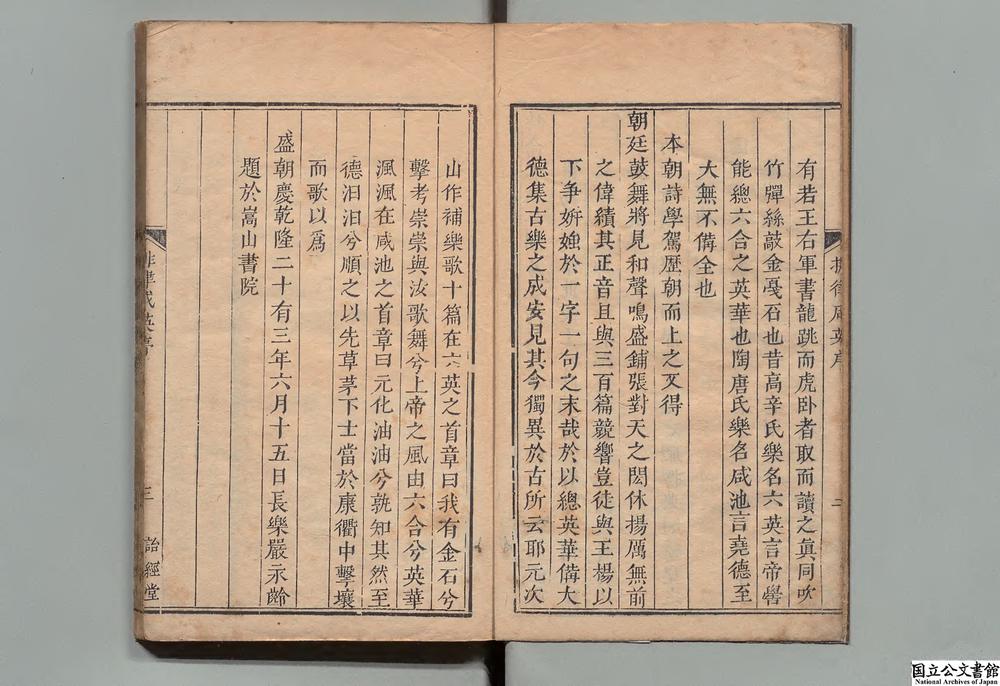 有若王右軍書龍跳而虎卧者取而讀之真同吹
竹彈絲敲金戞石也昔高辛氏樂名六英言帝嚳
能總六合之英華也陶唐氏樂名咸池言堯德至
大無不備全也
本朝詩學駕歷朝而上之又得
朝廷鼓舞將見和聲鳴盛鋪張對天之閎休揚厲無前
之偉績其正音且與三百篇競響豈徒與王楊以
下爭妍媸於一字一句之末哉於以總英華備大
德集古樂之成安見其今獨異於古所云耶元次
二
山作補樂歌十篇在六英之首章曰我有金石兮
擊考崇崇與汝歌舞兮上帝之風由六合兮英華
渢渢在咸池之首章曰元化油油兮孰知其然至
德汩汩兮順之以先草茅下士當於康衢中擊壤
而歌以爲
盛朝慶乾隆二十有三年六月十五日長樂嚴示齡
題於嵩山書院
三
詒經堂
国立公文書館
National Archives of Japan